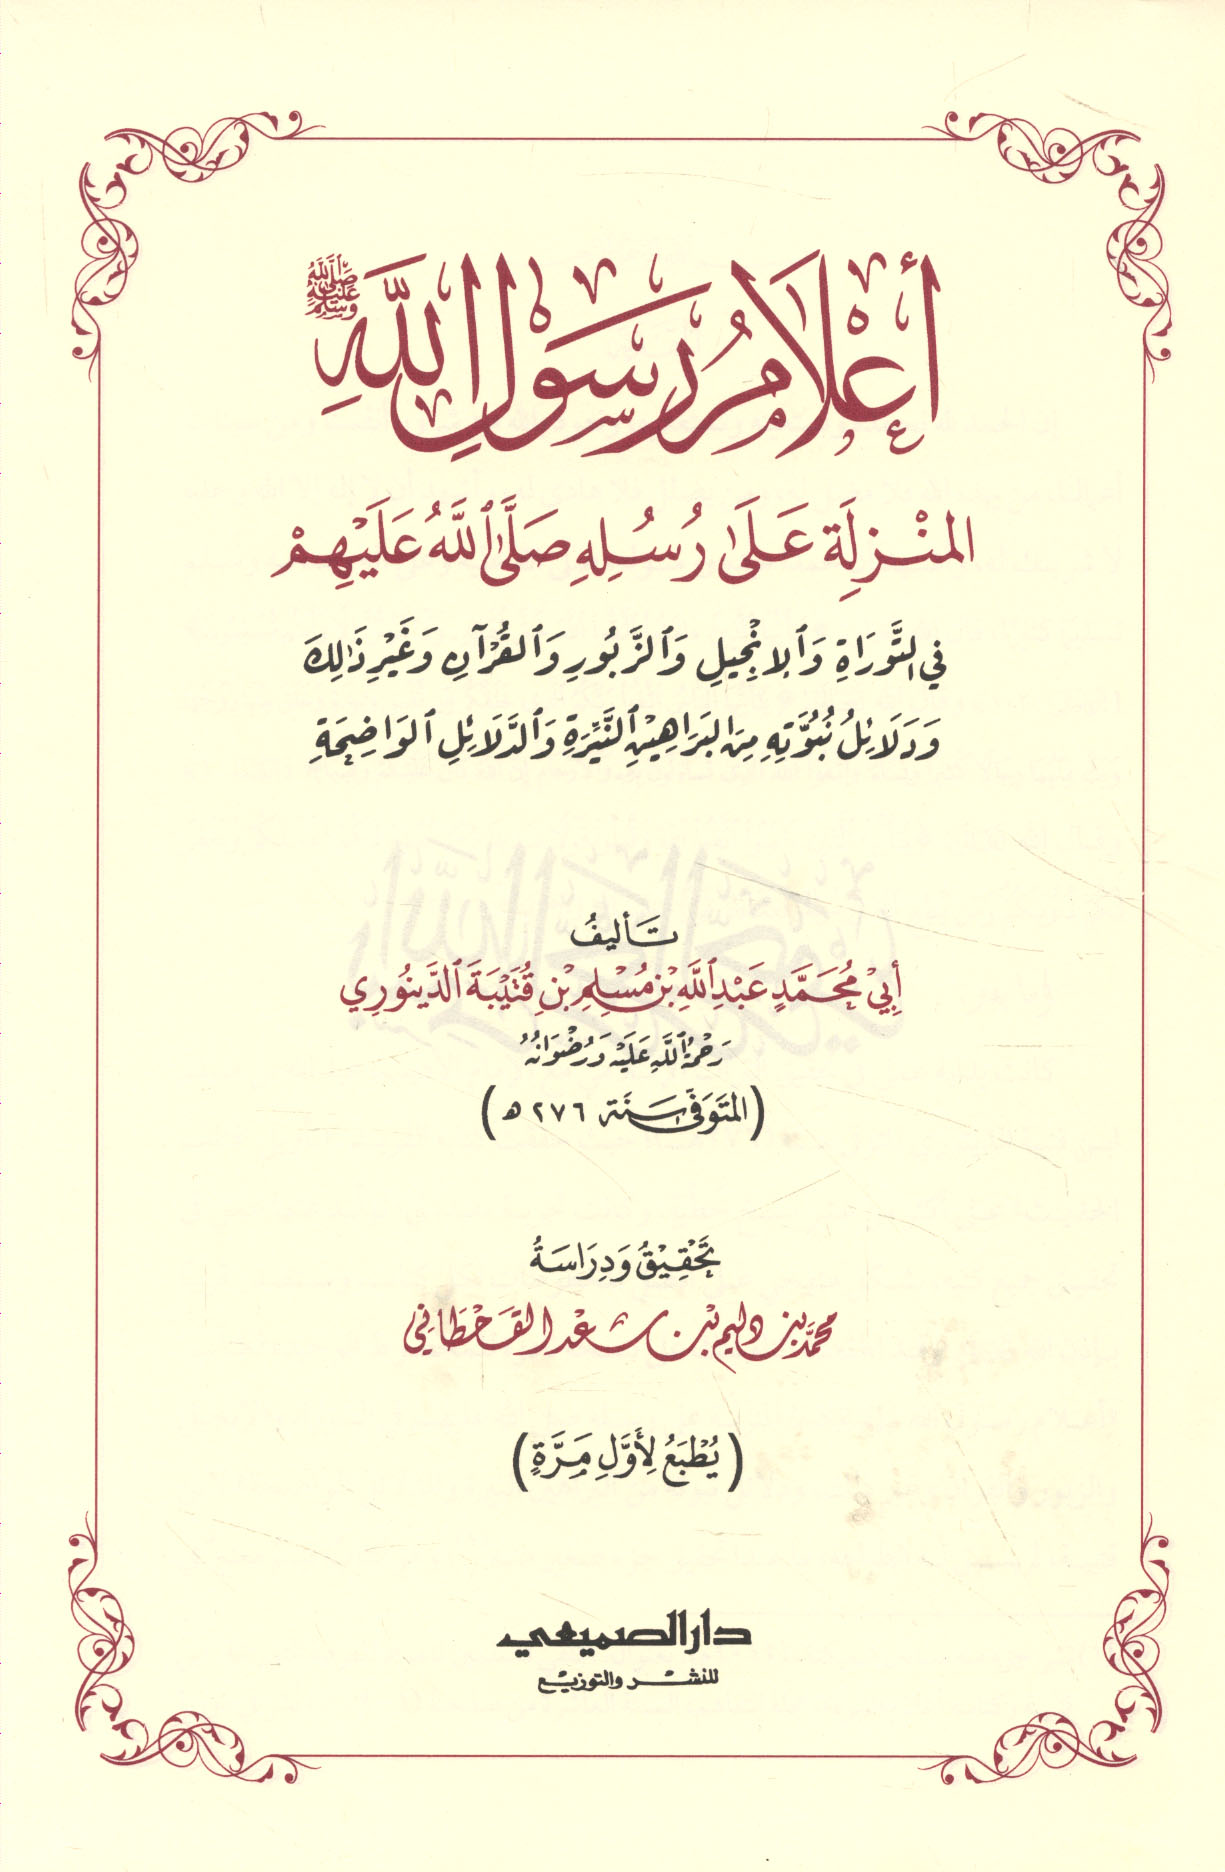 أَعْلَامُ رَسُولِ اللَّهِ ﷺ
المنْزلَة عَلَى رُسُلِهِ صَلَّى اللَّهُ عَلَيْهِمْ
في التَّوْرَاةِ وَالإِنْجِيلِ وَالزَّبُورِ وَالقُرْآنِ وَغَيْرِ ذَلِكَ
وَدَلَائِلُ نُبُوَّتِهِ مِنَ البَرَاهِيْنِ النَّيِّرَةِ وَالدَّلَائِلِ الوَاضِحَةِ
تَأليفُ
أَبِيْ مُحَمَّدٍ عَبْدِ اللَّهِ بْنِ مُسْلِمِ بْنِ قُتَيْبَةَ الدَّيْنُورِي
رَحْمَةُ اللَّهِ عَلَيْهِ وَرِضْوَانُهُ
(المتَوَفَّى سَنَة ٢٧٦ هـ)
تَحْقِيْقُ وَدِرَاسَةُ
محمَّد بن دليم بْن سَعْد القَحْطَاني
(يُطْبَعُ لِأَوَّلِ مَرَّةٍ)
دار الصميعي
للنشر والتوزيع